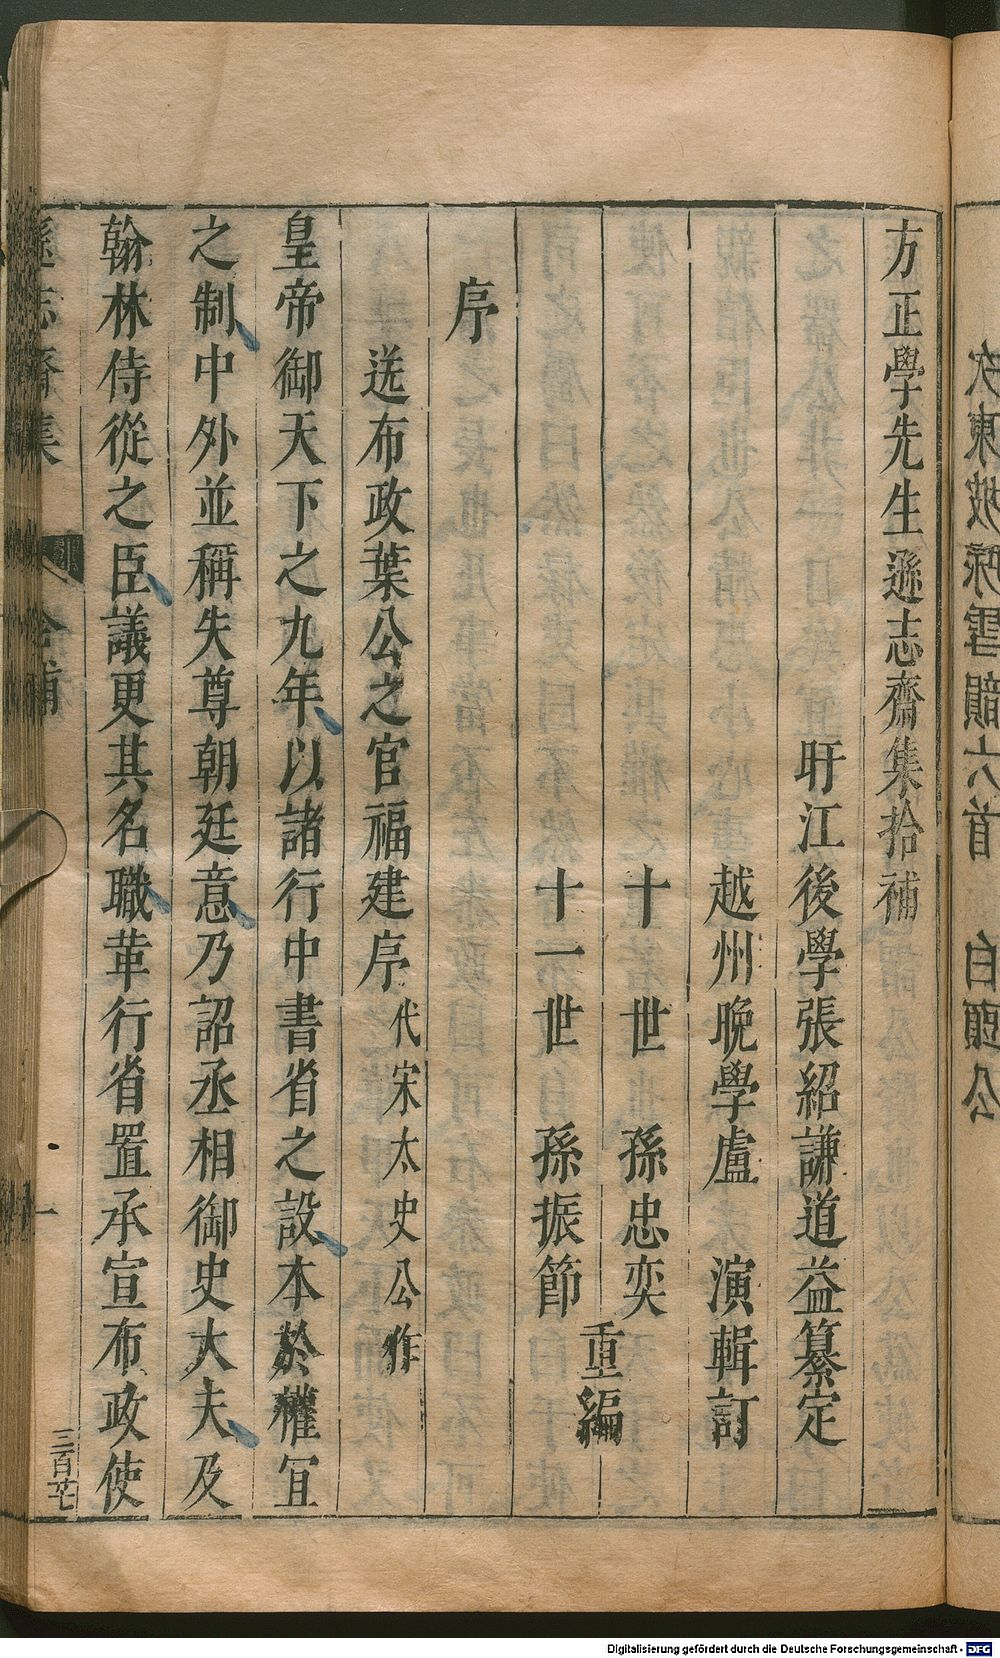 方正學先生遜志齋集拾補
盱江後學張紹謙道益纂定
越州晚學盧演輯訂
十世孫忠奕
十一世孫振節
重編
序
送布政葉公之官福建序 代宋太史公作
皇帝御天下之九年以諸行中書省之設本於權宜
之制中外並稱失尊朝廷意乃詔丞相御史大夫及
翰林侍從之臣議更其名職革行省置承宣布政使
遜志齋集
拾補
一
三百廿七
Digitalisierung gefördert durch die Deutsche Forschungsgemeinschaft - DFG